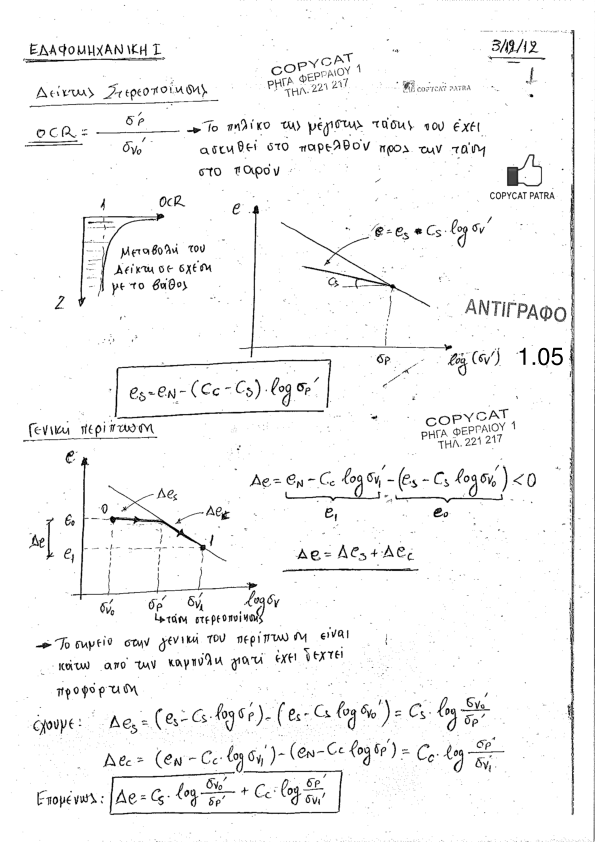 ΕΔΑΦΟΜΗΧΑΝΙΚΗ Ι
3/12/12
COPYCAT
ΡΗΓΑ ΦΕΡΡΑΙΟΥ 1
ΤΗΛ. 221 217
COPYCAT PATRA
Δείκτης Στερεοποίησης
OCR = σp' / σv₀' → Το πηλίκο της μέγιστης τάσης που έχει
ασκηθεί στο παρελθόν προς την τάση
στο παρόν
COPYCAT PATRA
1 OCR
Μεταβολή του
Δείκτη σε σχέση
με το βάθος
z
e
e = e_s - C_s · log σv'
C_s
σp log (σv')
ΑΝΤΙΓΡΑΦΟ
1.05
e_s = e_N - (C_c - C_s) · log σp'
Γενική περίπτωση
COPYCAT
ΡΗΓΑ ΦΕΡΡΑΙΟΥ 1
ΤΗΛ. 221 217
e
0 Δe_s
Δe_c
e₀
Δe
e₁
1
σv₀' σp' σv₁' log σv
↳ τάση στερεοποίησης
Δe = e_N - C_c log σv₁' - (e_s - C_s log σv₀') < 0
e₁ e₀
Δe = Δe_s + Δe_c
→ Το σημείο στην γενική του περίπτωση είναι
κάτω από την καμπύλη γιατί έχει δεχτεί
προφόρτιση
έχουμε: Δe_s = (e_s - C_s · log σp') - (e_s - C_s log σv₀') = C_s · log σv₀' / σp'
Δe_c = (e_N - C_c · log σv₁') - (e_N - C_c log σp') = C_c · log σp' / σv₁'
Επομένως: Δe = C_s · log σv₀' / σp' + C_c · log σp' / σv₁'